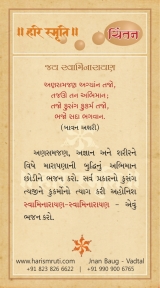 ॥ હરિ સ્મૃતિ ॥
ચિંતન
જય સ્વામિનારાયણ
અણસમજણ અજ્ઞાન તજો,
તજીદ્યો તન અભિમાન;
તજો કુસંગ કુકર્મ તજો,
ભજો સદા ભગવાન.
(બાવન અક્ષરી)
અણસમજણ, અજ્ઞાન અને શરીરને
વિષે મારાપણાની બુદ્ધિનું અભિમાન
છોડીને ભજન કરો. સર્વ પ્રકારનો કુસંગ
ત્યજીને કુકર્મોનો ત્યાગ કરી અહોનિશ
સ્વામિનારાયણ-સ્વામિનારાયણ - એવું
ભજન કરો.
www.harismruti.com | Jnan Baug - Vadtal
+91 823 826 6622 | +91 990 900 6765